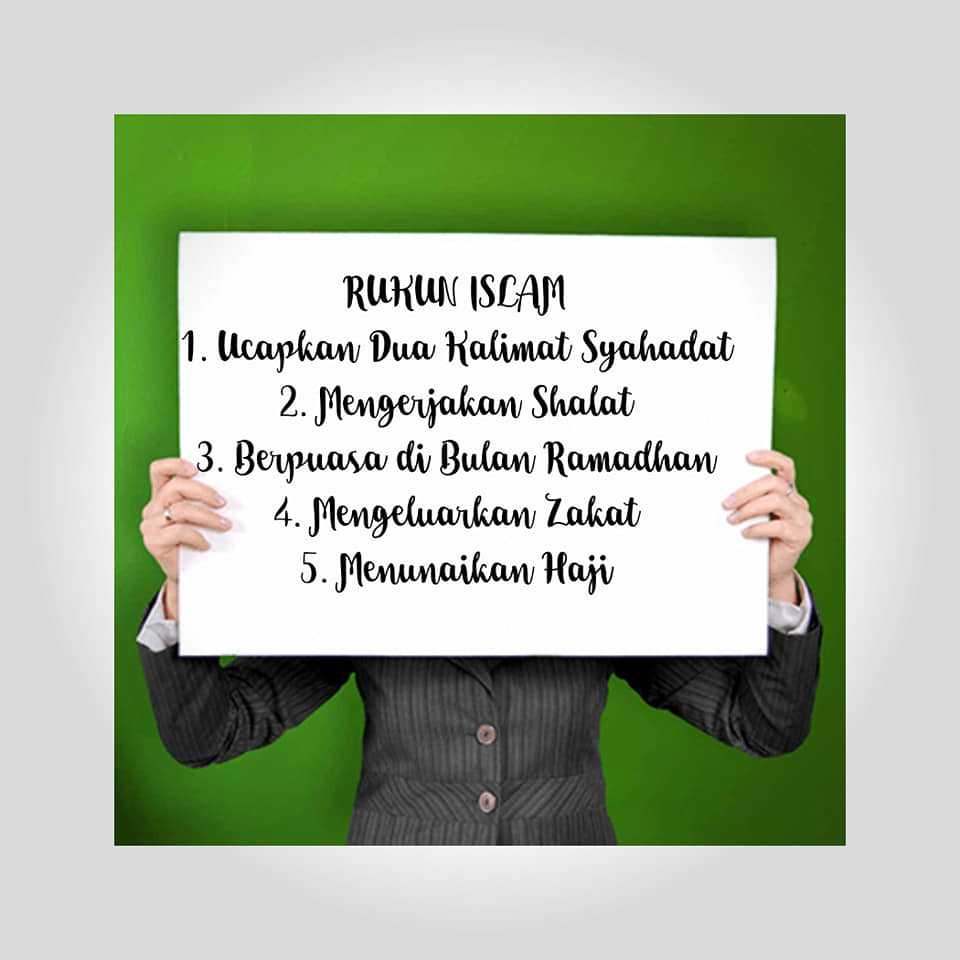 RUKUN ISLAM
1. Ucapkan Dua Kalimat Syahadat
2. Mengerjakan Shalat
3. Berpuasa di Bulan Ramadhan
4. Mengeluarkan Zakat
5. Menunaikan Haji